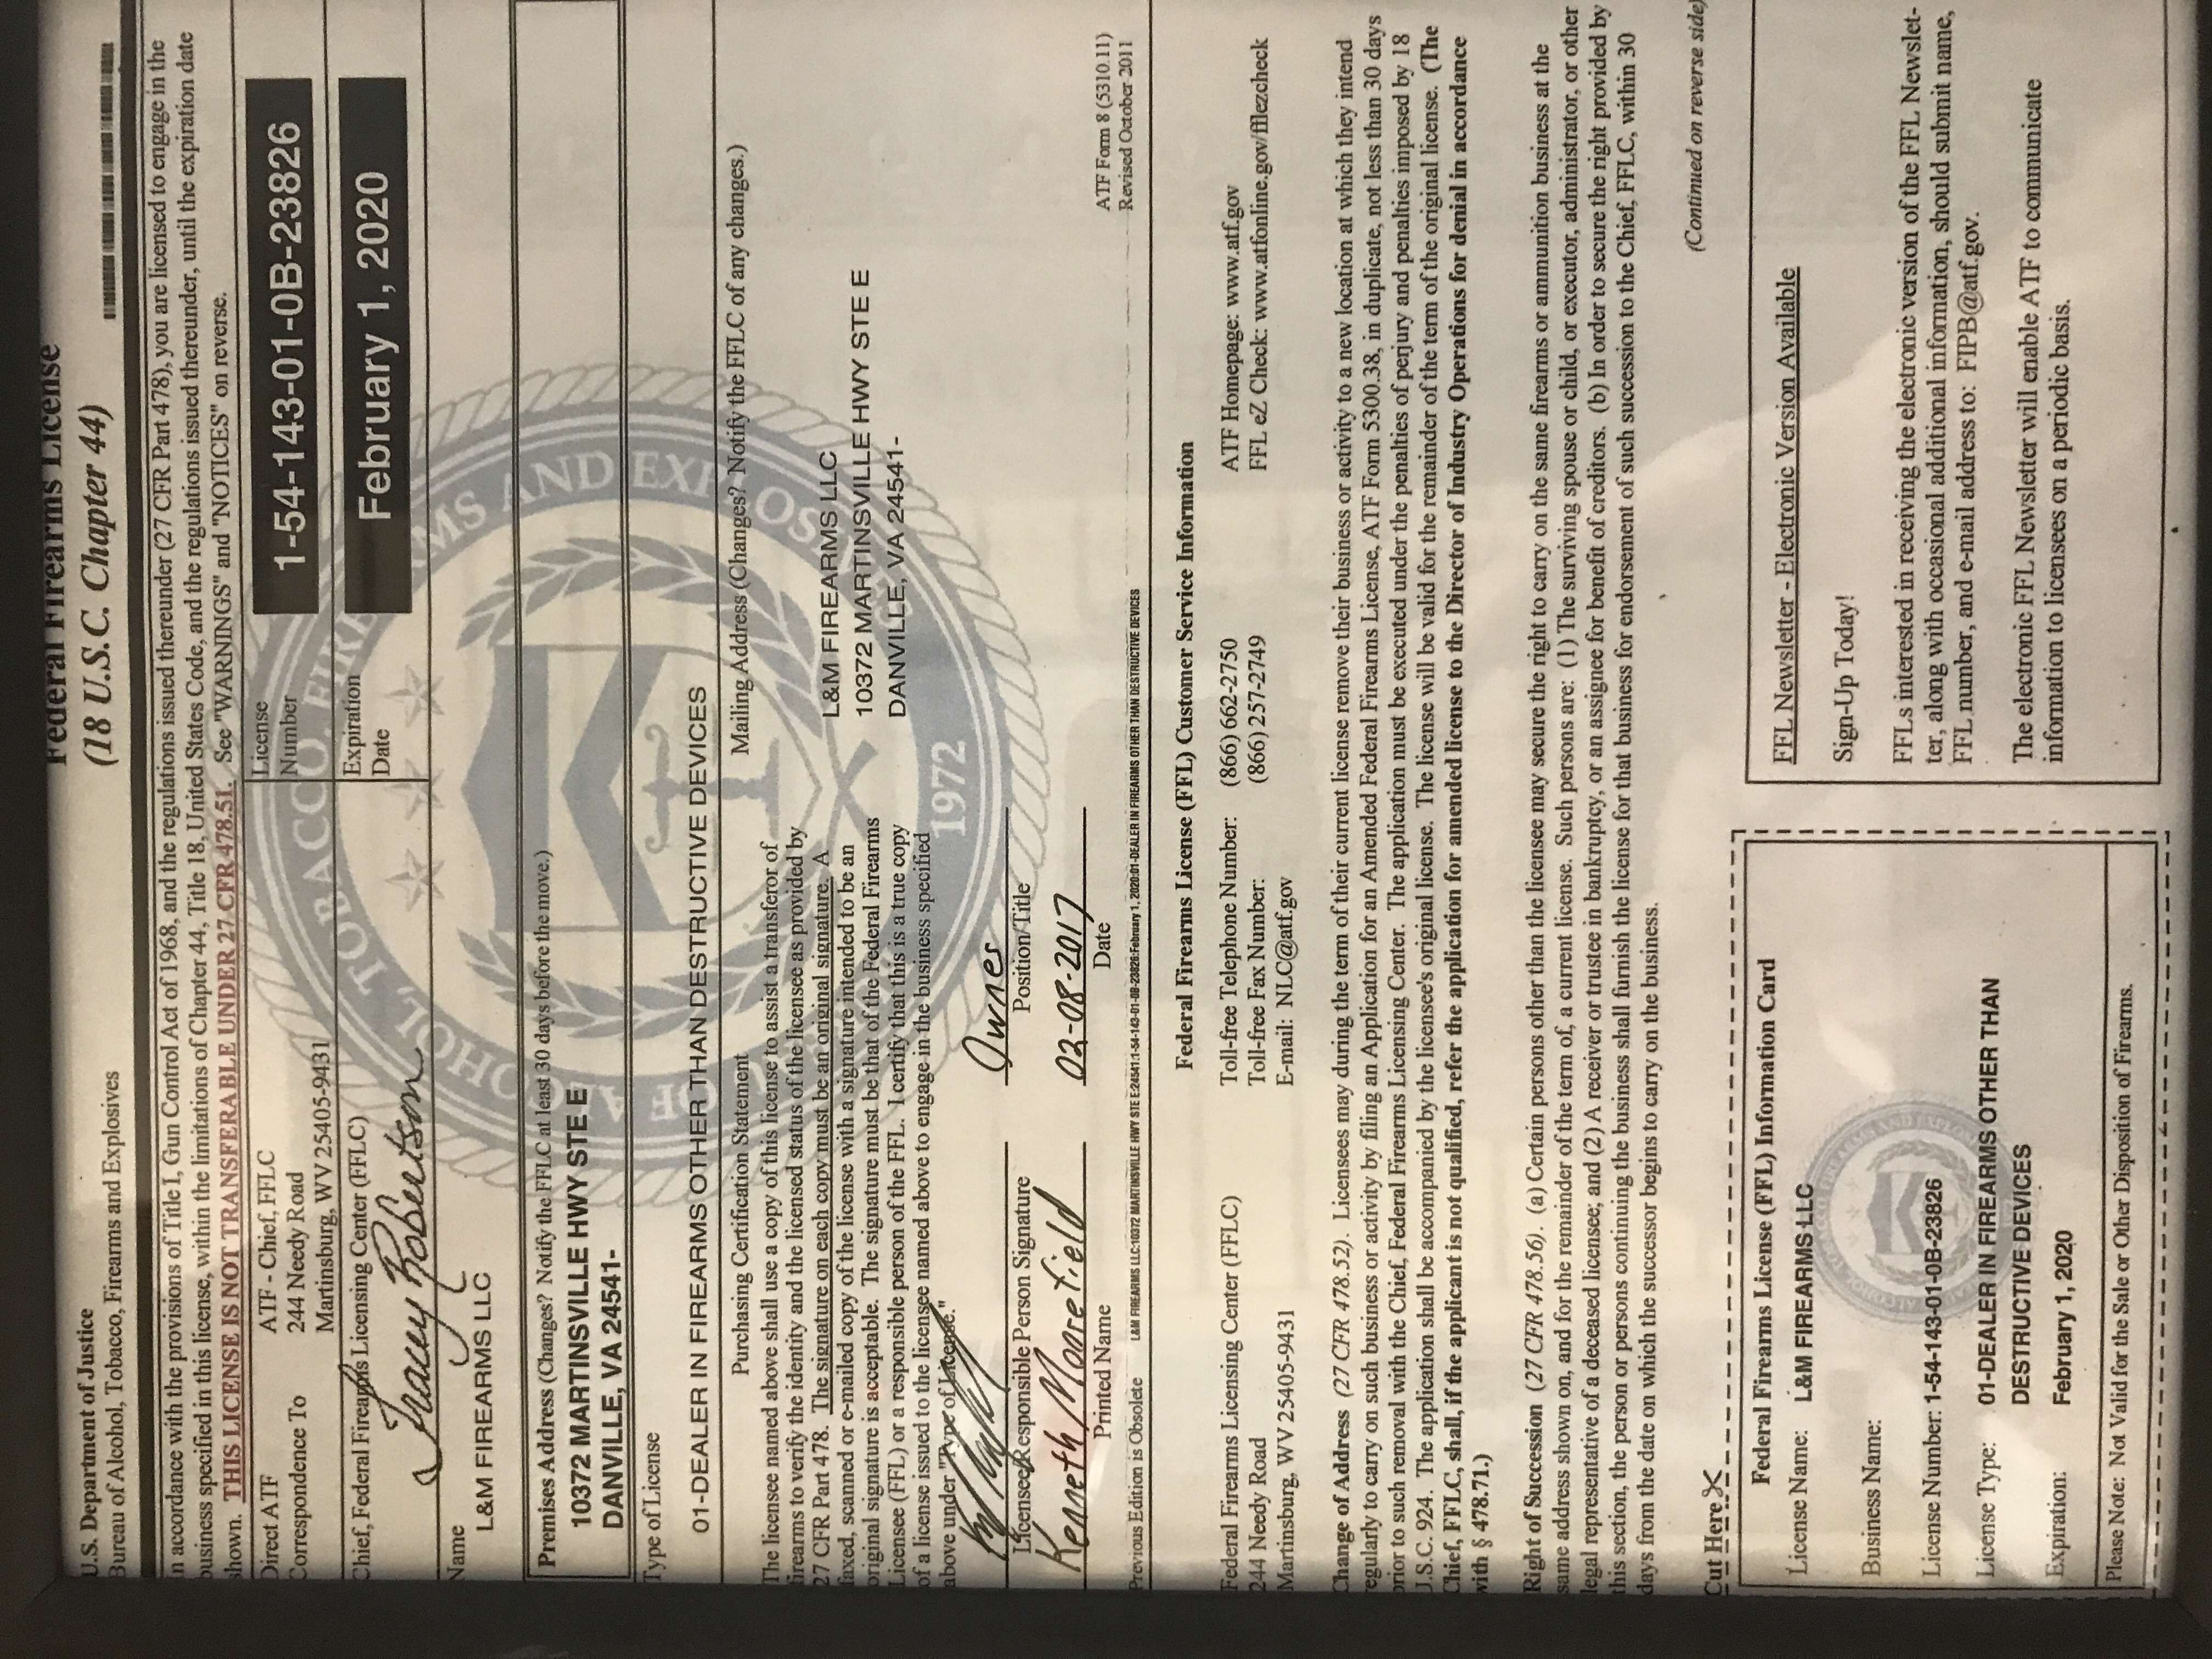 Federal Firearms License
(18 U.S.C. Chapter 44)
U.S. Department of Justice
Bureau of Alcohol, Tobacco, Firearms and Explosives
In accordance with the provisions of Title I, Gun Control Act of 1968, and the regulations issued thereunder (27 CFR Part 478), you are licensed to engage in the
business specified in this license, within the limitations of Chapter 44, Title 18, United States Code, and the regulations issued thereunder, until the expiration date
shown. THIS LICENSE IS NOT TRANSFERABLE UNDER 27 CFR 478.51. See "WARNINGS" and "NOTICES" on reverse.
Direct ATF
Correspondence To
ATF - Chief, FFLC
244 Needy Road
Martinsburg, WV 25405-9431
License
Number
1-54-143-01-0B-23826
Chief, Federal Firearms Licensing Center (FFLC)
Tracey Robertson
Expiration
Date
February 1, 2020
Name
L&M FIREARMS LLC
Premises Address (Changes? Notify the FFLC at least 30 days before the move.)
10372 MARTINSVILLE HWY STE E
DANVILLE, VA 24541-
Type of License
01-DEALER IN FIREARMS OTHER THAN DESTRUCTIVE DEVICES
Purchasing Certification Statement
The licensee named above shall use a copy of this license to assist a transferor of
firearms to verify the identity and the licensed status of the licensee as provided by
27 CFR Part 478. The signature on each copy must be an original signature. A
faxed, scanned or e-mailed copy of the license with a signature intended to be an
original signature is acceptable. The signature must be that of the Federal Firearms
Licensee (FFL) or a responsible person of the FFL. I certify that this is a true copy
of a license issued to the licensee named above to engage in the business specified
above under "Type of License."
Mailing Address (Changes? Notify the FFLC of any changes.)
L&M FIREARMS LLC
10372 MARTINSVILLE HWY STE E
DANVILLE, VA 24541-
1972
Owner
Licensee/Responsible Person Signature
Position/Title
Kenneth Moorefield
02-08-2017
Printed Name
Date
ATF Form 8 (5310.11)
Revised October 2011
Previous Edition is Obsolete
L&M FIREARMS LLC:10372 MARTINSVILLE HWY STE E:24541:1-54-143-01-0B-23826:February 1, 2020:01-DEALER IN FIREARMS OTHER THAN DESTRUCTIVE DEVICES
Federal Firearms License (FFL) Customer Service Information
Federal Firearms Licensing Center (FFLC)
244 Needy Road
Martinsburg, WV 25405-9431
Toll-free Telephone Number: (866) 662-2750
Toll-free Fax Number: (866) 257-2749
E-mail: NLC@atf.gov
ATF Homepage: www.atf.gov
FFL eZ Check: www.atfonline.gov/fflezcheck
Change of Address (27 CFR 478.52). Licensees may during the term of their current license remove their business or activity to a new location at which they intend
regularly to carry on such business or activity by filing an Application for an Amended Federal Firearms License, ATF Form 5300.38, in duplicate, not less than 30 days
prior to such removal with the Chief, Federal Firearms Licensing Center. The application must be executed under the penalties of perjury and penalties imposed by 18
U.S.C. 924. The application shall be accompanied by the licensee's original license. The license will be valid for the remainder of the term of the original license. (The
Chief, FFLC, shall, if the applicant is not qualified, refer the application for amended license to the Director of Industry Operations for denial in accordance
with § 478.71.)
Right of Succession (27 CFR 478.56). (a) Certain persons other than the licensee may secure the right to carry on the same firearms or ammunition business at the
same address shown on, and for the remainder of the term of, a current license. Such persons are: (1) The surviving spouse or child, or executor, administrator, or other
legal representative of a deceased licensee; and (2) A receiver or trustee in bankruptcy, or an assignee for benefit of creditors. (b) In order to secure the right provided by
this section, the person or persons continuing the business shall furnish the license for that business for endorsement of such succession to the Chief, FFLC, within 30
days from the date on which the successor begins to carry on the business.
(Continued on reverse side)
Cut Here
Federal Firearms License (FFL) Information Card
License Name: L&M FIREARMS LLC
Business Name:
License Number: 1-54-143-01-0B-23826
License Type: 01-DEALER IN FIREARMS OTHER THAN
DESTRUCTIVE DEVICES
Expiration: February 1, 2020
Please Note: Not Valid for the Sale or Other Disposition of Firearms.
FFL Newsletter - Electronic Version Available
Sign-Up Today!
FFLs interested in receiving the electronic version of the FFL Newslet-
ter, along with occasional additional information, should submit name,
FFL number, and e-mail address to: FIPB@atf.gov.
The electronic FFL Newsletter will enable ATF to communicate
information to licensees on a periodic basis.